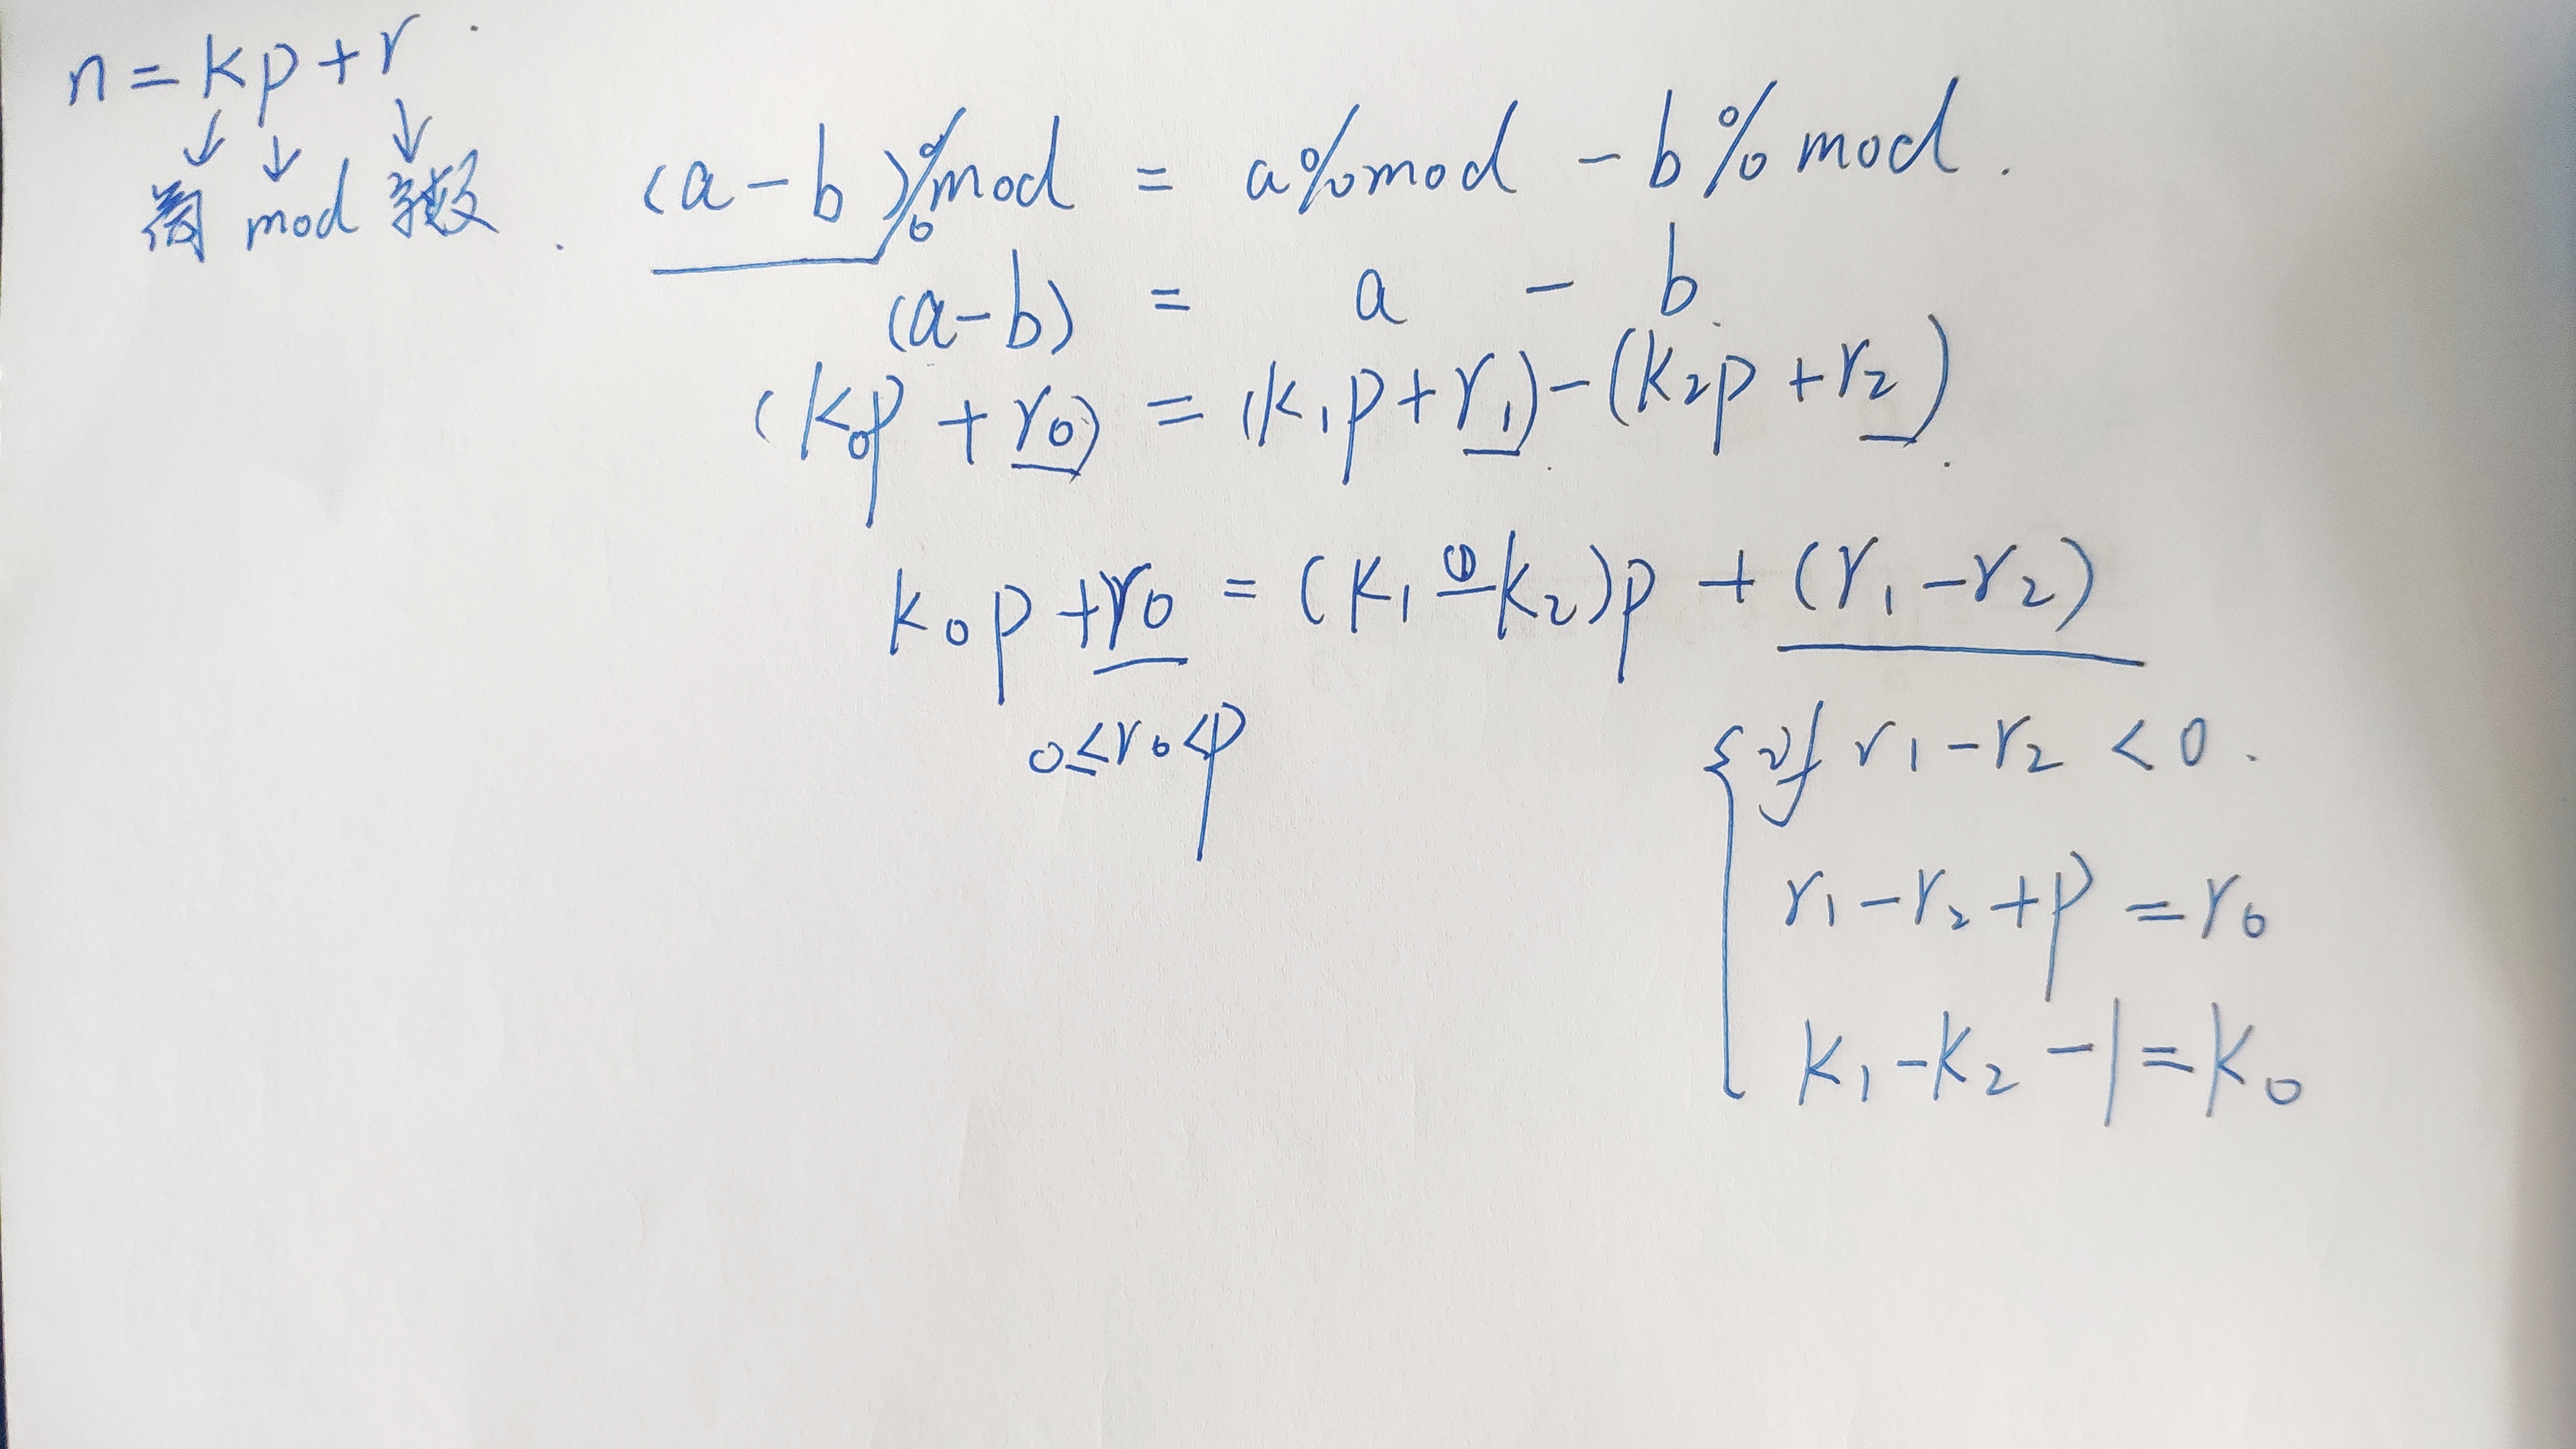 n = kp + r
↓ ↓ ↓
商 mod 余数
(a-b)%mod = a%mod - b%mod.
(a-b) = a - b
(k₀p + r₀) = (k₁p + r₁) - (k₂p + r₂)
k₀p + r₀ = (k₁ - k₂)p + (r₁ - r₂)
0 ≤ r₀ < p
{ if r₁ - r₂ < 0.
r₁ - r₂ + p = r₀
k₁ - k₂ - 1 = k₀